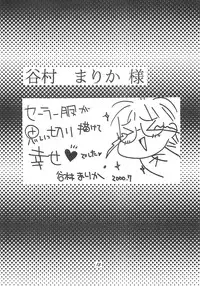 谷村 まりか 様
セーラー服が
思い切り描けて
幸せ♥でした♡
谷村まりか 2000.7